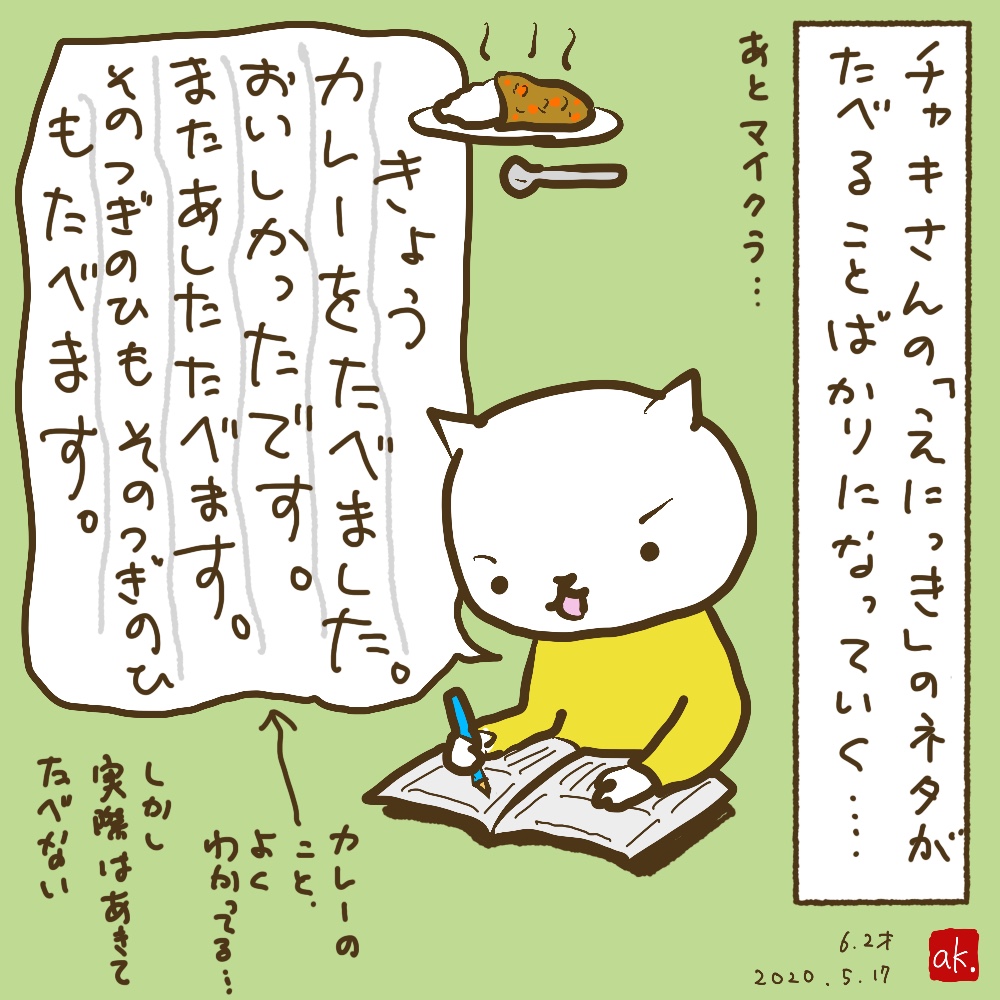 チャキさんの「えにっき」のネタが
たべることばかりになっていく……
あとマイクラ…
きょう
カレーをたべました。
おいしかったです。
またあしたたべます。
そのつぎのひもそのつぎのひ
もたべます。
カレーの
こと、
よく
わかってる…
しかし
実際はあきて
たべない
6.2才
2020.5.17
ak.